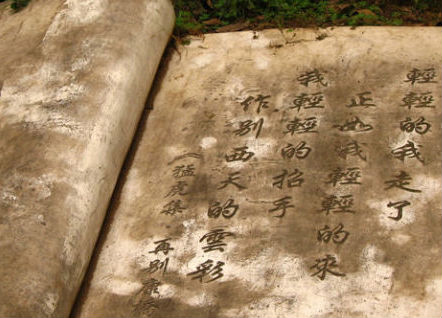 輕輕的我走了
正如我輕輕的來
我輕輕的招手
作別西天的雲彩
猛虎集
再別康橋